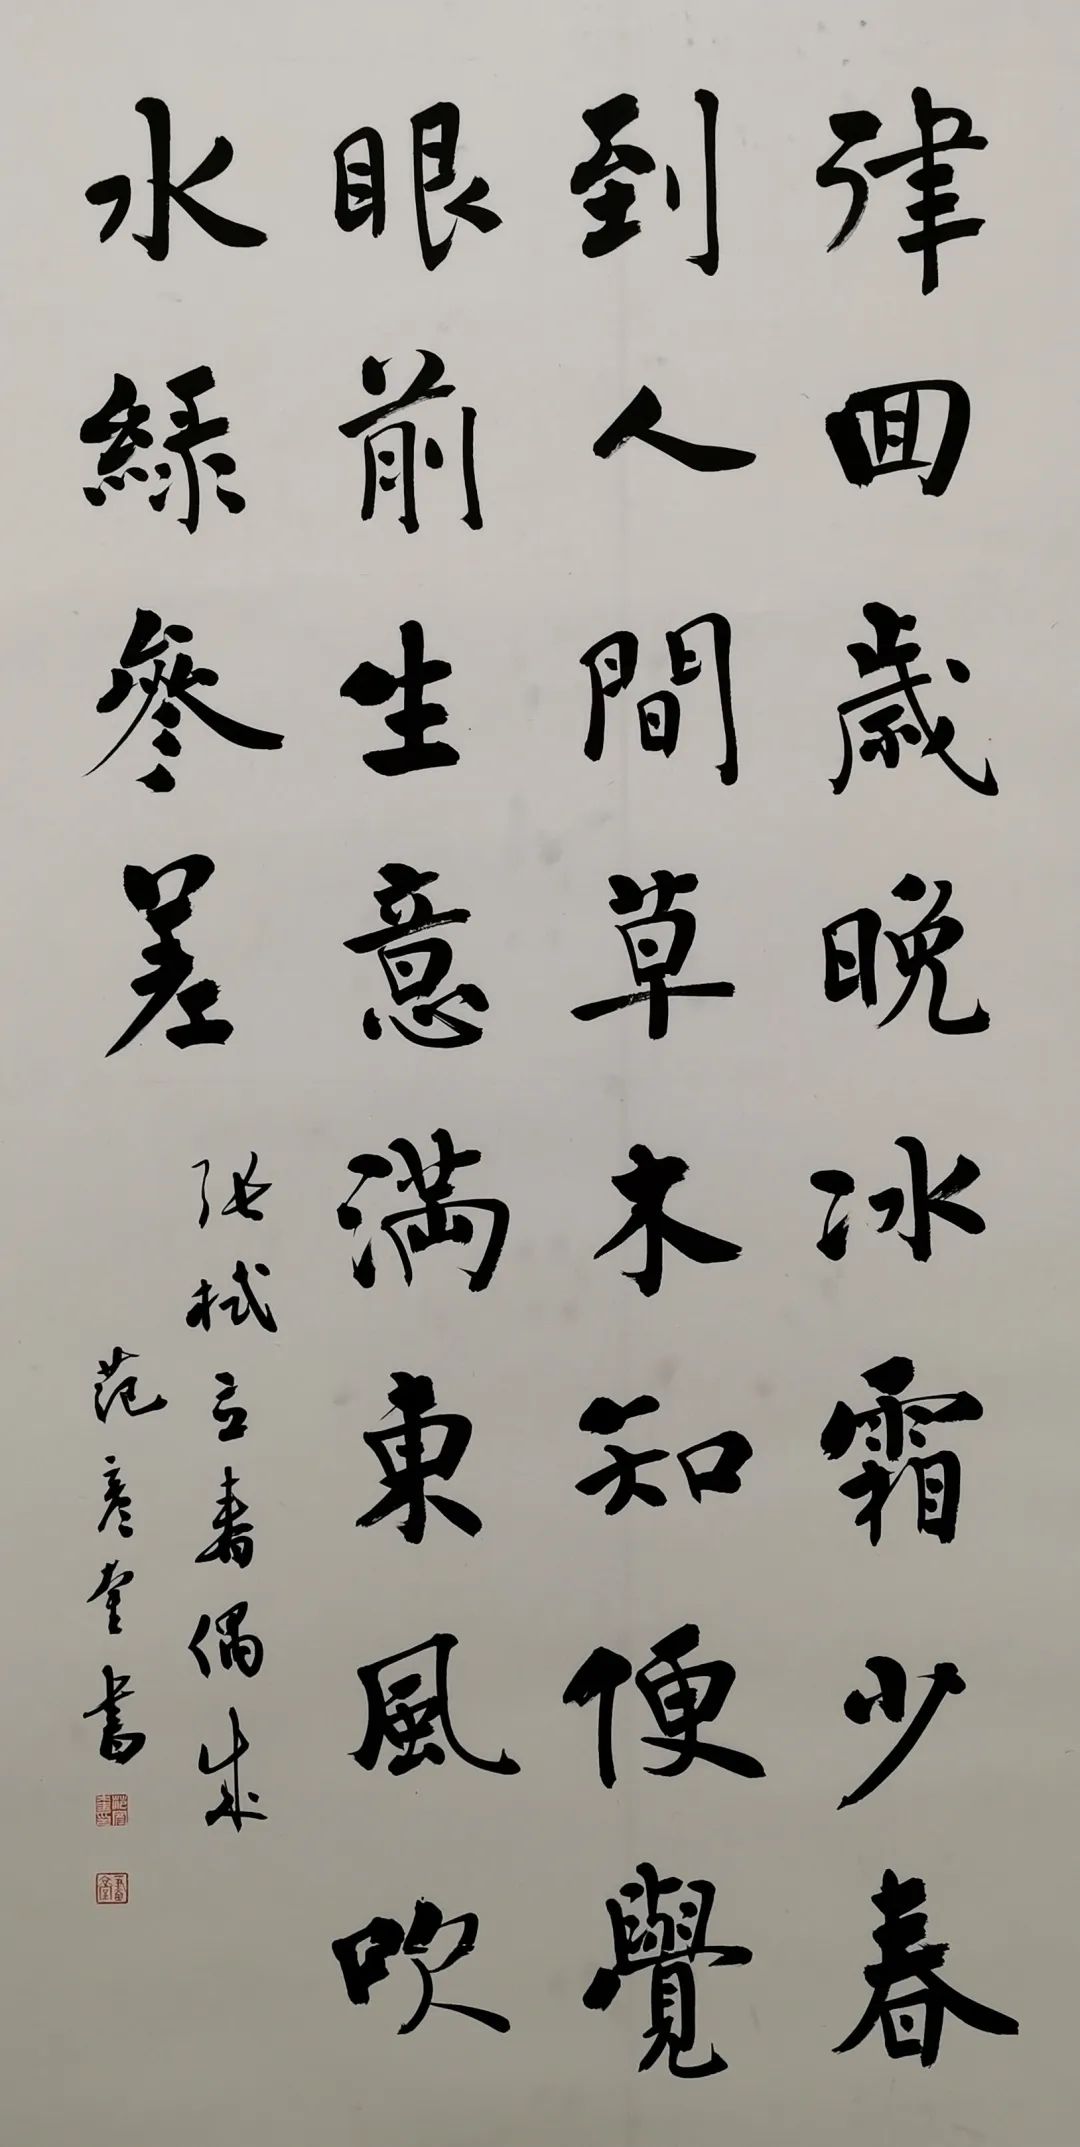 律回歲晚冰霜少春
到人間草木知便覺
眼前生意滿東風吹
水綠參差
张栻立春偶成
范彦奎書